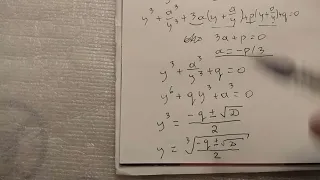 y³ + a³/y³ + 3a(y + a/y) + p(y + a/y) + q = 0
3a + p = 0
a = -p/3
y³ + a³/y³ + q = 0
y⁶ + qy³ + a³ = 0
y³ = (-q ± √D)/2
y = ³√((-q ± √D)/2)